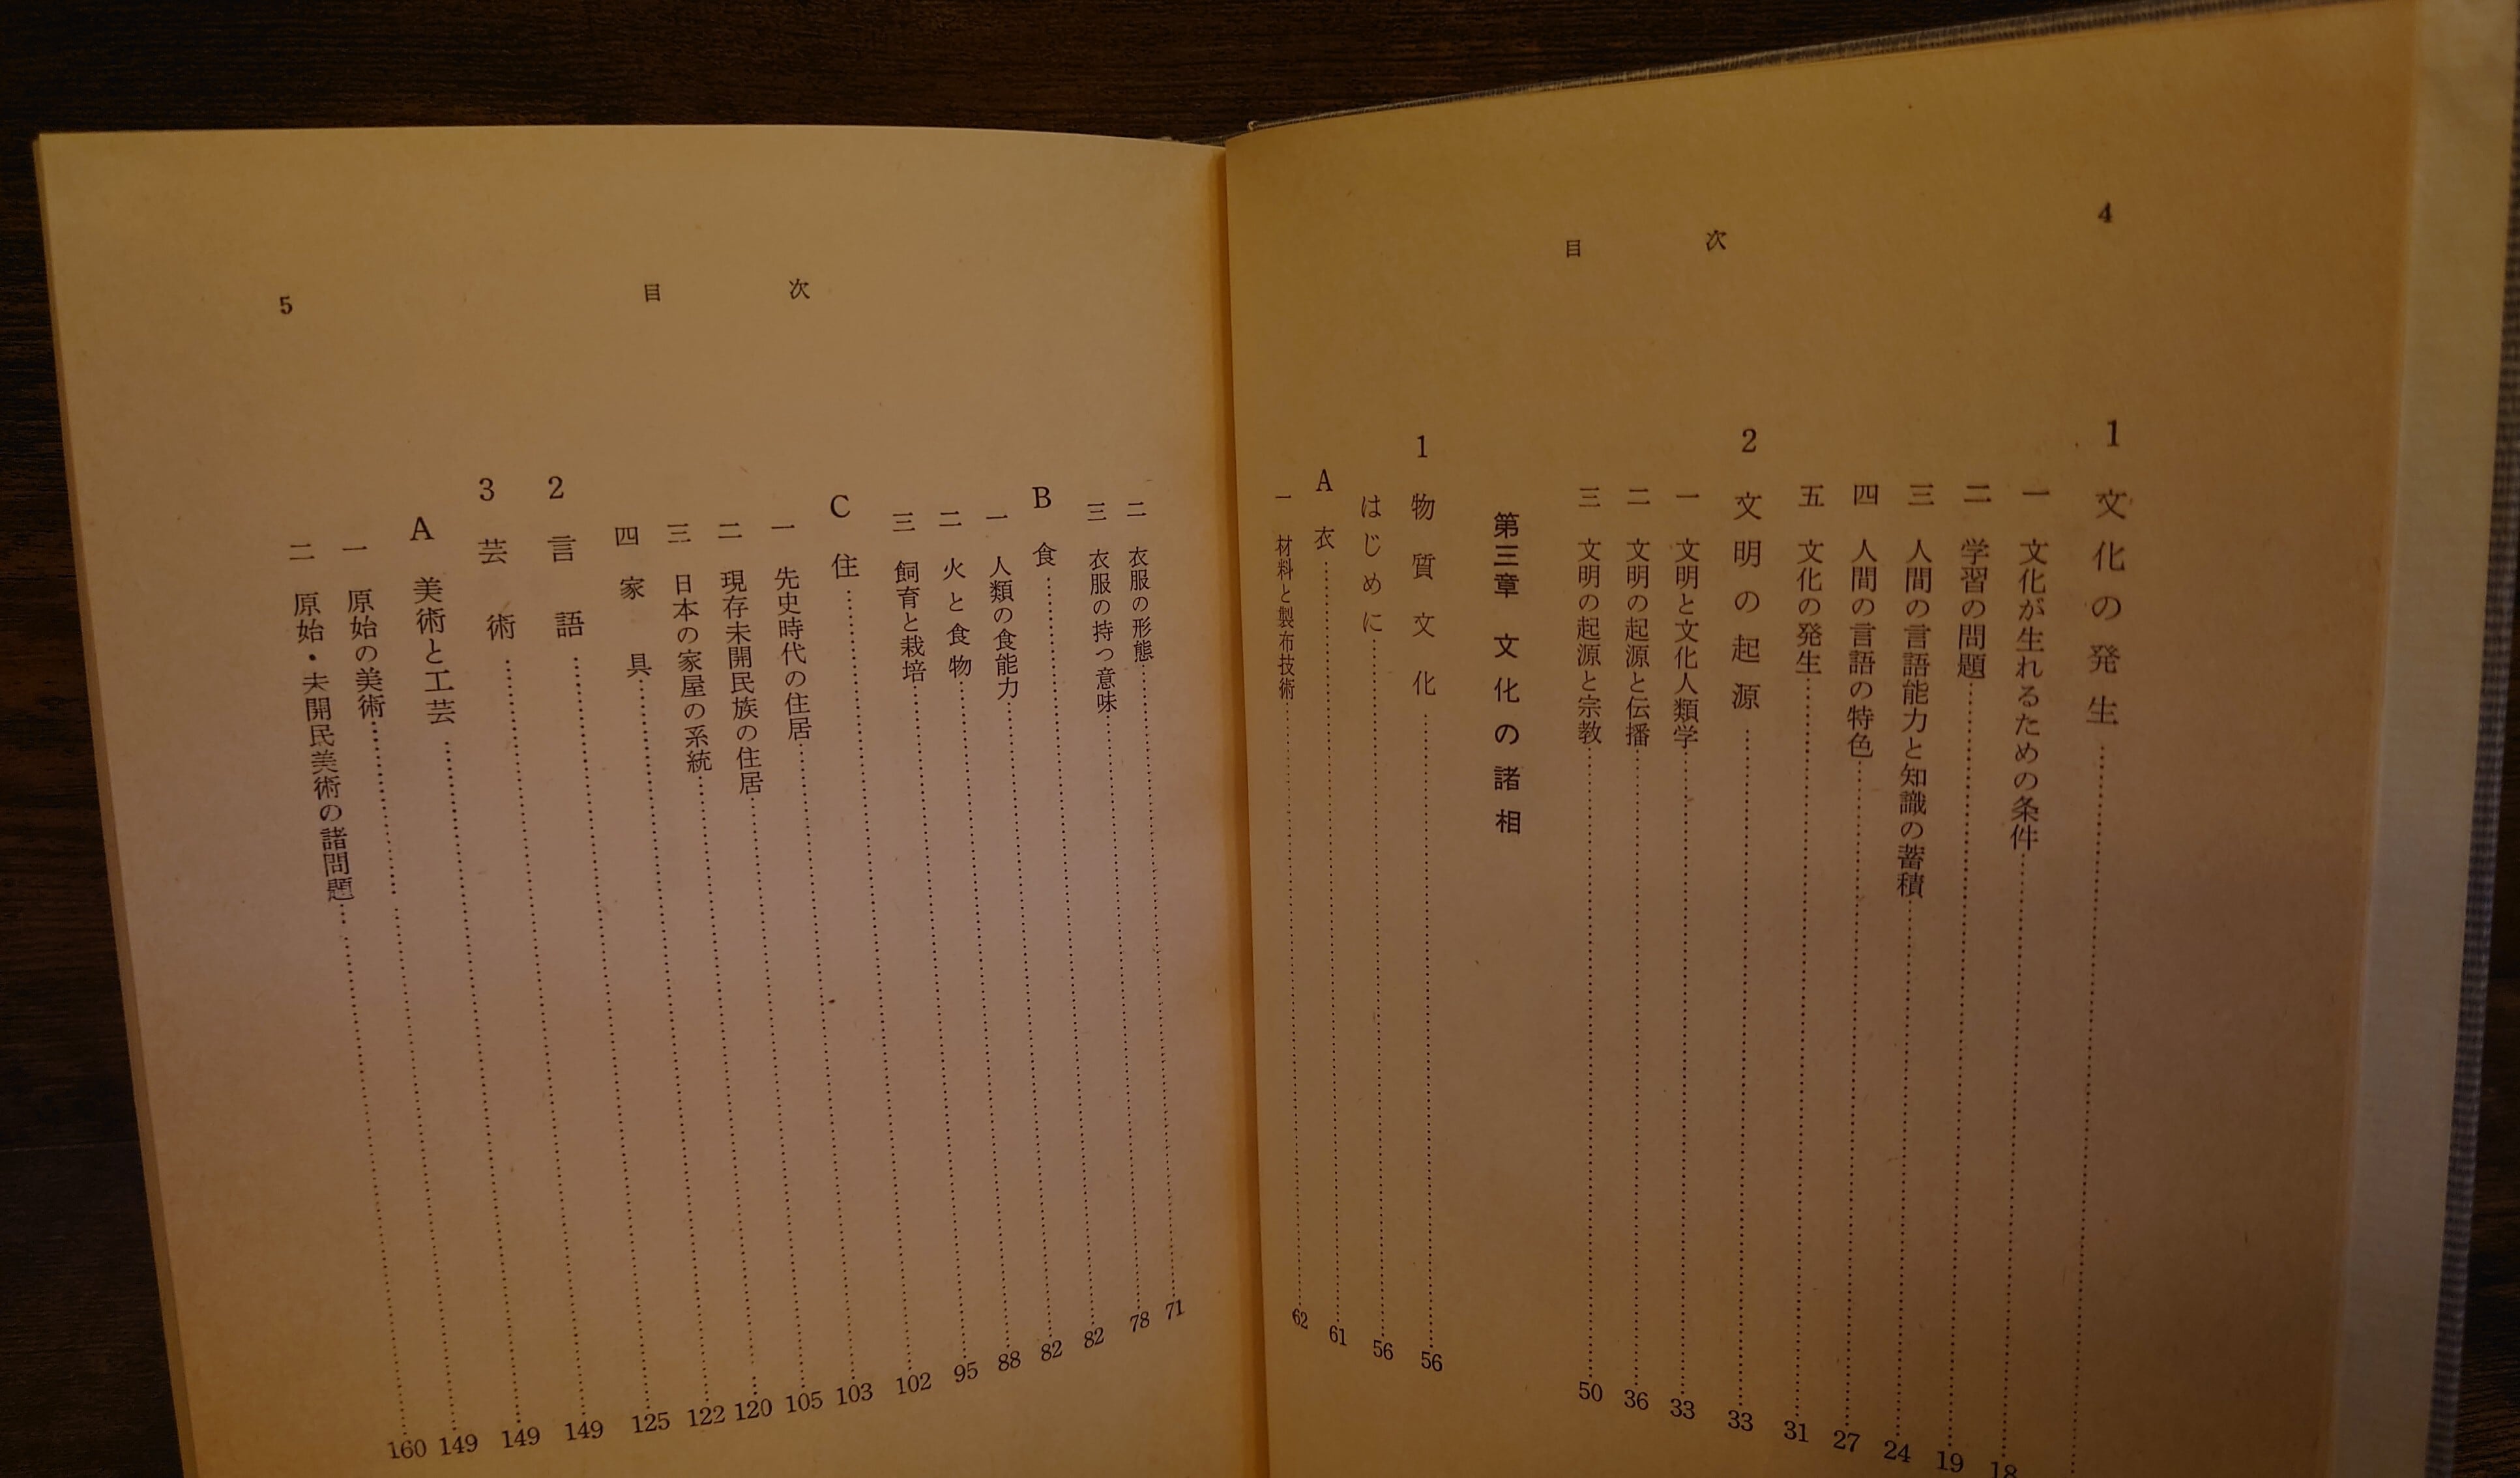 4
目次
1 文化の発生
一 文化が生れるための条件……18
二 学習の問題……19
三 人間の言語能力と知識の蓄積……24
四 人間の言語の特色……27
五 文化の発生……31
2 文明の起源……33
一 文明と文化人類学……33
二 文明の起源と伝播……36
三 文明の起源と宗教……50
第三章 文化の諸相
1 物質文化……56
はじめに……56
A 衣……61
一 材料と製布技術……62
目次
5
二 衣服の形態……71
三 衣服の持つ意味……78
B 食……82
一 人類の食能力……82
二 火と食物……88
三 飼育と栽培……95
C 住……102
一 先史時代の住居……103
二 現存未開民族の住居……105
三 日本の家屋の系統……120
四 家具……122
2 言語……125
3 芸術……149
A 美術と工芸……149
一 原始の美術……149
二 原始・未開民美術の諸問題……160